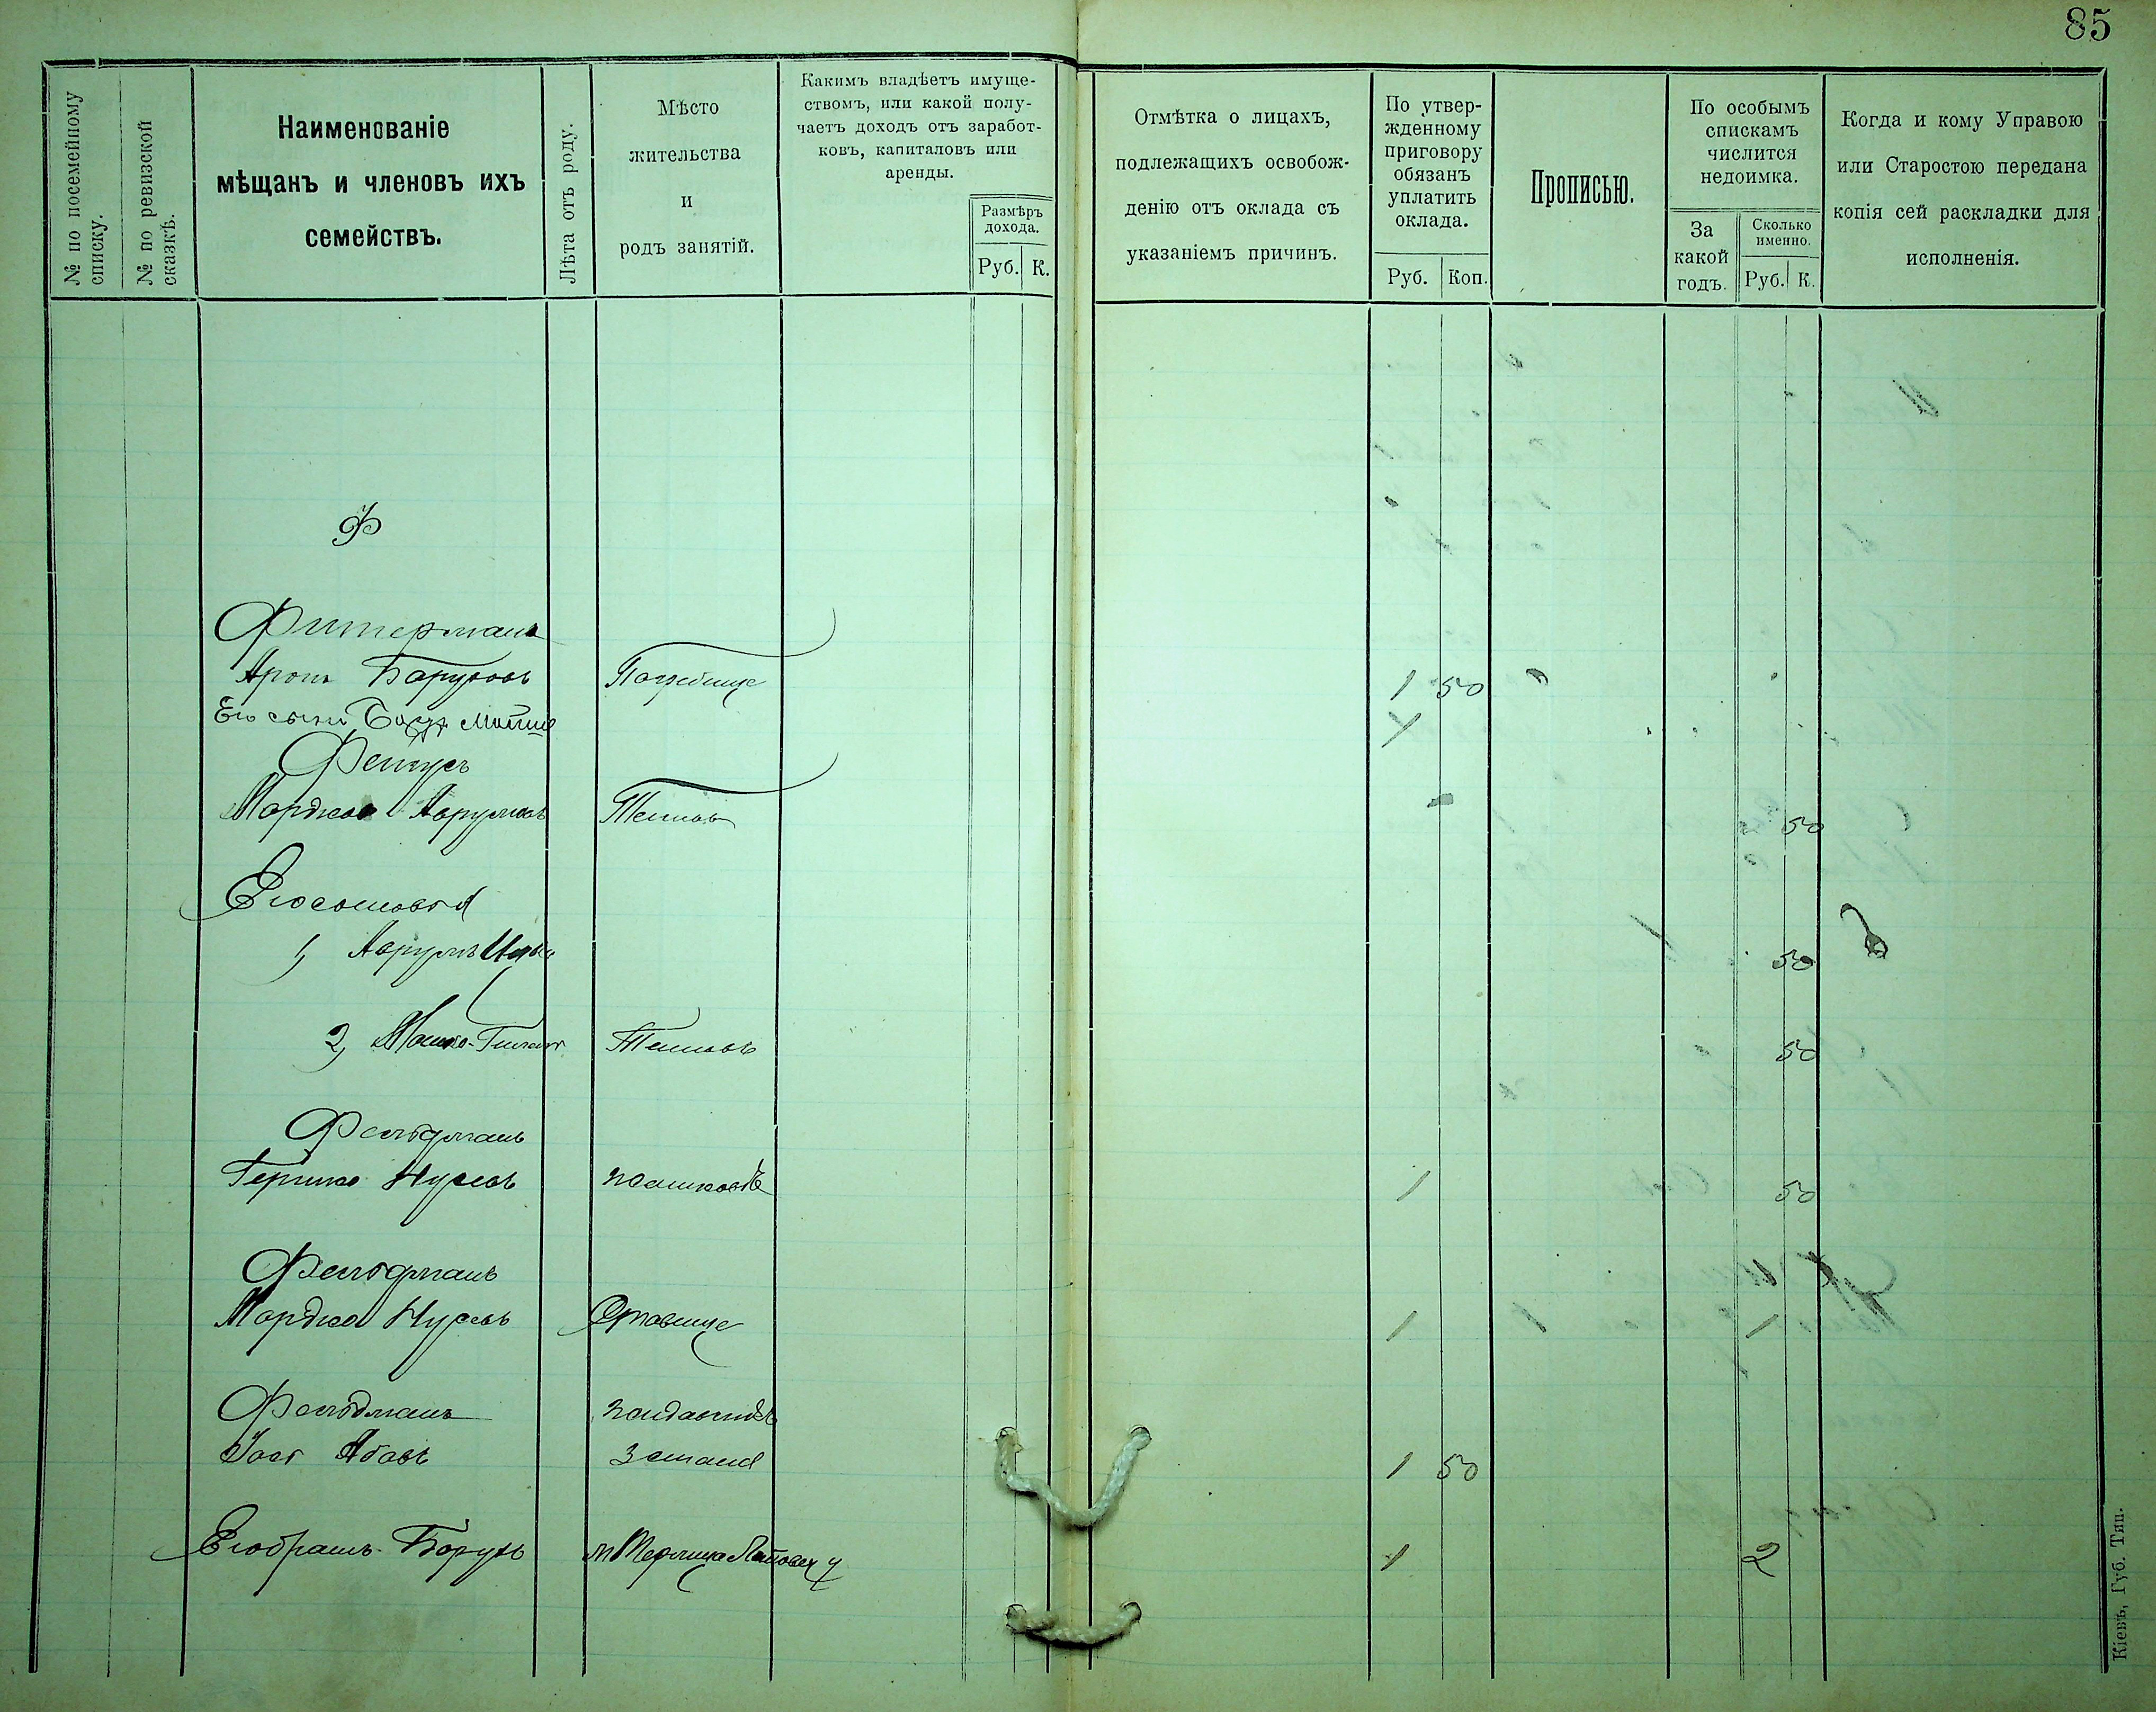 85
№ по посемейному
списку.
№ по ревизской
сказкѣ.
Наименованіе
мѣщанъ и членовъ ихъ
семействъ.
Лѣта отъ роду.
Мѣсто
жительства
и
родъ занятій.
Какимъ владѣетъ имуще-
ствомъ, или какой полу-
чаетъ доходъ отъ заработ-
ковъ, капиталовъ или
аренды.
Размѣръ
дохода.
Руб. К.
Отмѣтка о лицахъ,
подлежащихъ освобож-
денію отъ оклада съ
указаніемъ причинъ.
По утвер-
жденному
приговору
обязанъ
уплатить
оклада.
Руб. Коп.
Прописью.
По особымъ
спискамъ
числится
недоимка.
За
какой
годъ.
Сколько
именно.
Руб. К.
Когда и кому Управою
или Старостою передана
копія сей раскладки для
исполненія.
Ф
Фитерманъ
Аронъ Баруховъ Погребище 1 50
Его сынъ
Мордко Аврумовъ 50
Его сыновья
1) Аврумъ 50
2) Мошко 50
Фельдманъ
Гершко Нусевъ 1 50
Фельдманъ
Мордко Нусевъ 1 1
Фельдманъ
1 50
Его братъ Борухъ 1 2
Кіевъ, Губ. Тип.